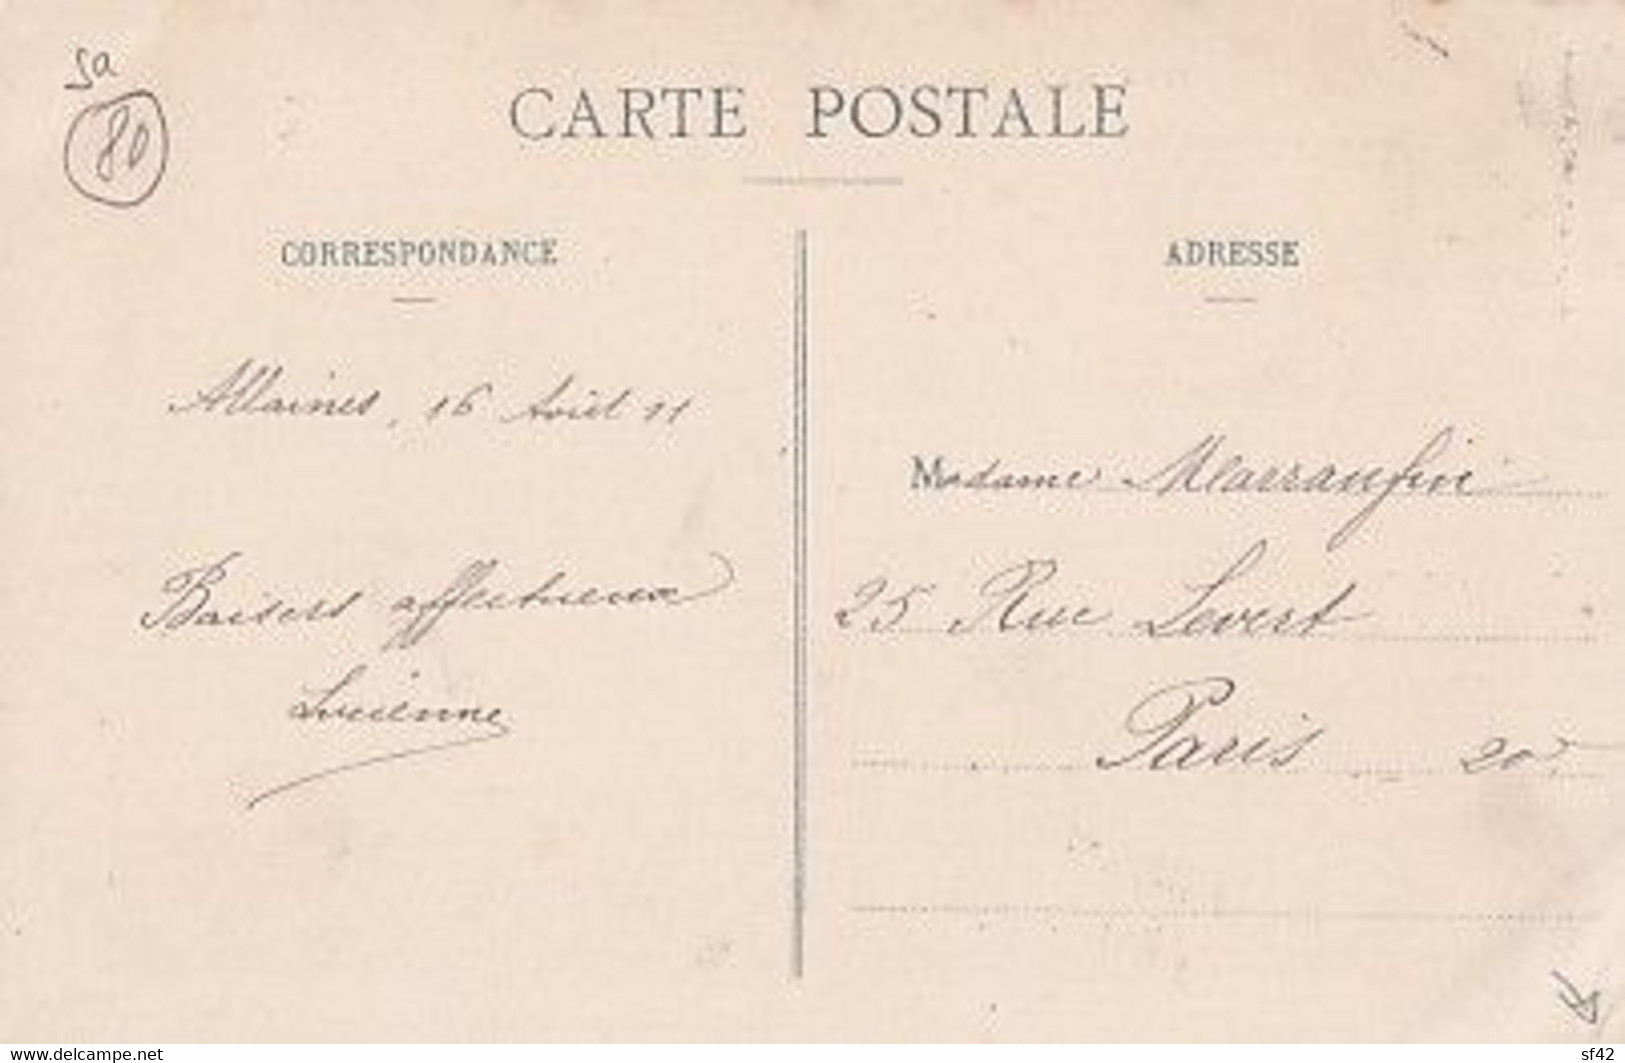 5a
80
CARTE POSTALE
CORRESPONDANCE
Allaines, 16 Août 11
Baisers affectueux
Lucienne
ADRESSE
Madame
25 Rue Levert
Paris 20
www.delcampe.net
sf42